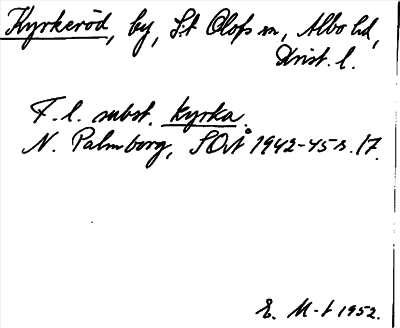 Kyrkeröd, by, S:t Olofs sn, Albo hd,
Krist. l.
F. l. subst. kyrka.
N. Palmborg, SOrtÅ 1942-45 s. 17.
E. M-t 1952.